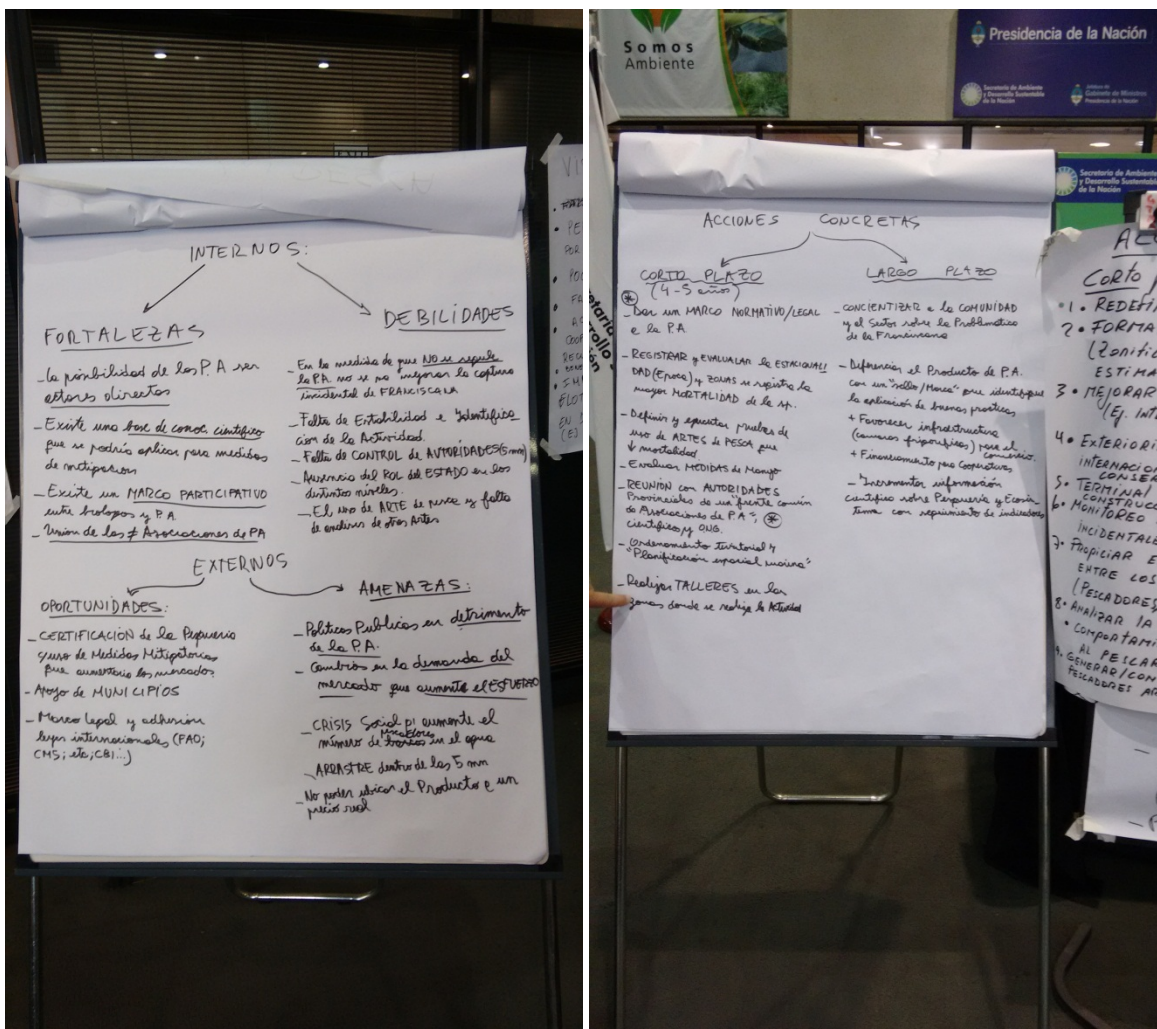 INTERNOS:
FORTALEZAS
- La posibilidad de los P.A ser
actores directos
- Existe una base de conoc. científico
que se podría aplicar para medidas
de mitigación
- Existe un MARCO PARTICIPATIVO
entre biólogos y P.A
- Unión de las ≠ Asociaciones de PA
DEBILIDADES
- En la medida de que NO se regule
la P.A. no se va mejorar la captura
incidental de FRANCISCANA
- Falta de Estabilidad e Identifica
ción de la Actividad.
- Falta de CONTROL de AUTORIDADES (5 mn)
- Ausencia del ROL del ESTADO en los
distintos niveles.
- El uso de ARTE de pesca y falta
de análisis de otras Artes
EXTERNOS
OPORTUNIDADES:
- CERTIFICACIÓN de la Pesquería
y uso de Medidas Mitigatorias
que aumentaría los mercados
- Apoyo de MUNICIPIOS
- Marco Legal y adhesión
leyes internacionales (FAO;
CMS; etc; CBI...)
AMENAZAS:
- Políticas Publicas en detrimento
de la P.A.
- Cambios en la demanda del
mercado que aumente el ESFUERZO
- CRISIS Social p/ aumente el
pescadores
número de en el agua
- ARRASTRE dentro de las 5 mn
- No poder ubicar el Producto a un
precio real
Somos
Ambiente
Presidencia de la Nación
Secretaría de Ambiente
y Desarrollo Sustentable
de la Nación
Jefatura de
Gabinete de Ministros
Presidencia de la Nación
Secretaría de Ambiente
y Desarrollo Sustentable
de la Nación
ACCIONES CONCRETAS
CORTO PLAZO
(4-5 años)
- Dar un MARCO NORMATIVO/LEGAL
a la P.A.
- REGISTRAR y EVALUALAR la ESTACIONALI
DAD (Epoca) y ZONAS se registra la
mayor MORTALIDAD de la sp.
- Definir y ejecutar pruebas de
uso de ARTES de PESCA que
↓ mortalidad
- Evaluar MEDIDAS de Manejo
- REUNIÓN con AUTORIDADES
Provinciales de un "frente común
de Asociaciones de P.A";
científicos y ONG.
- Ordenamiento territorial y
"Planificación espacial marina"
- Realizar TALLERES en las
zonas donde se realiza la Actividad
LARGO PLAZO
- CONCIENTIZAR a la COMUNIDAD
y al Sector sobre la Problemática
de la Franciscana
- Diferenciar el Producto de P.A.
con un "sello/Marca" que identifique
la aplicación de buenas prácticas
+ Favorecer infraestructura
(camaras frigoríficas) para el
comercio.
+ Financiamiento para Cooperativas
- Incrementar información
científica sobre Pesquería y Ecosis
tema con seguimiento de indicadores
Corto
1. REDEFI
2. FORMA
(Zonific
ESTIMA
3. MEJORAR
(Ej. INT
4. EXTERIORI
INTERNACION
CONSER
5. TERMINAL
CONSTRUCC
6. MONITOREO
INCIDENTALE
7. PROPICIAR E
ENTRE LOS
(PESCADORES
8. ANALIZAR LA
COMPORTAMI
AL PESCAR
9. GENERAR/CON
PESCADORES AR